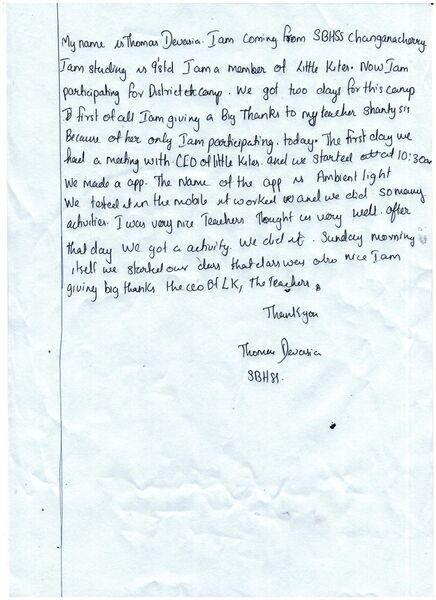 My name is Thomas Devasia. I am coming from SBHSS Changanacherry
I am studing is 9'std I am a member of Little Kites. Now I am
participating for District camp. We got two days for this camp
first of all I am giving a Big Thanks to my teacher shanty sis
Because of her only I am participating. today. The first day we
had a meeting with CEO of little Kites. and we started at 10:30am
We made a app. The Name of the app is Ambient light
We tested it in the mobile it worked and we did so many
activities. I was very nice Teachers Thought us very well. after
that day We got a activity. We did it. Sunday morning
itself we started our class that class was also nice I am
giving big thanks the ceo Of LK, The Teachers.
Thank you
Thomas Devasia
SBHSS.